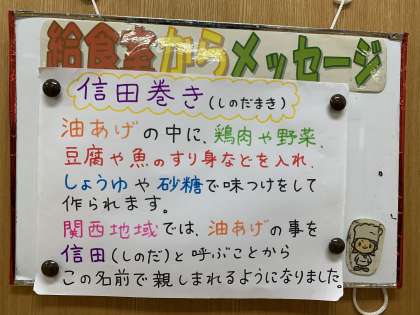 給食室からメッセージ
信田巻き(しのだまき)
油あげの中に、鶏肉や野菜、
豆腐や魚のすり身などを入れ、
しょうゆや砂糖で味つけをして
作られます。
関西地域では、油あげの事を
信田(しのだ)と呼ぶことから
この名前で親しまれるようになりました。